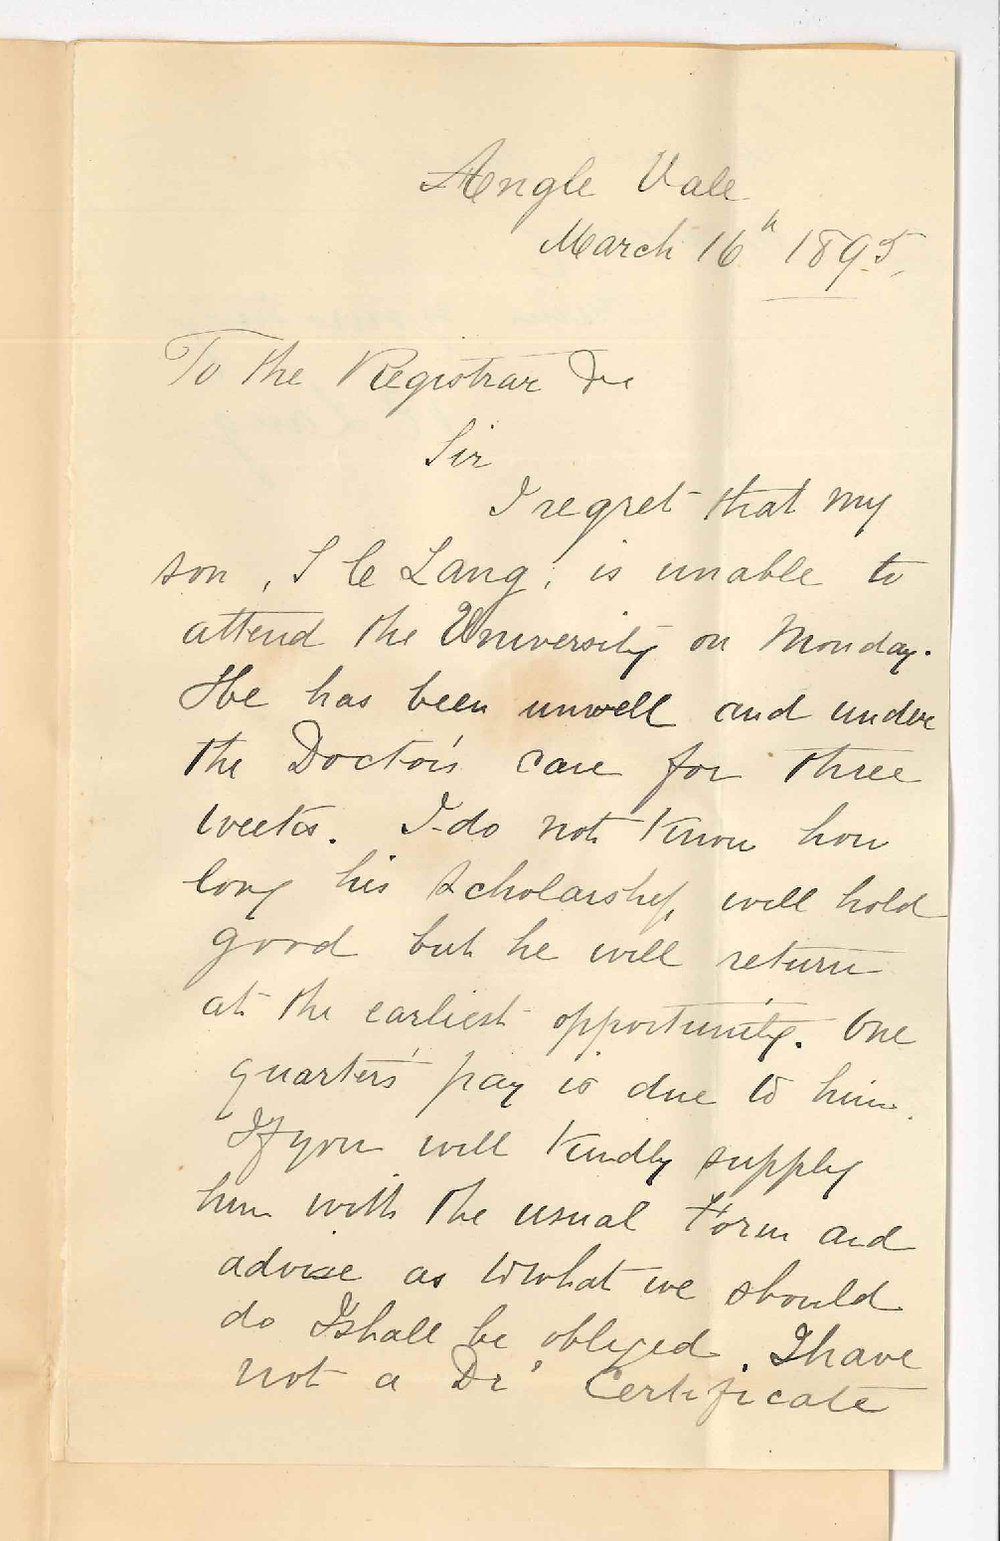 Angle Vale
March 16th 1895.
To the Registrar &c
Sir
I regret that my
son, S C Lang, is unable to
attend the University on Monday.
He has been unwell and under
the Doctor's care for three
weeks. I do not know how
long his scholarship will hold
good but he will return
at the earliest opportunity. One
quarter's pay is due to him.
If you will kindly supply
him with the usual Form and
advise as to what we should
do I shall be obliged. I have
not a Dr' Certificate